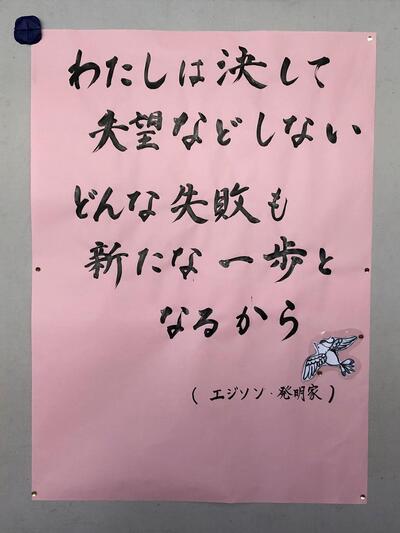 わたしは決して
失望などしない
どんな失敗も
新たな一歩と
なるから
(エジソン・発明家)